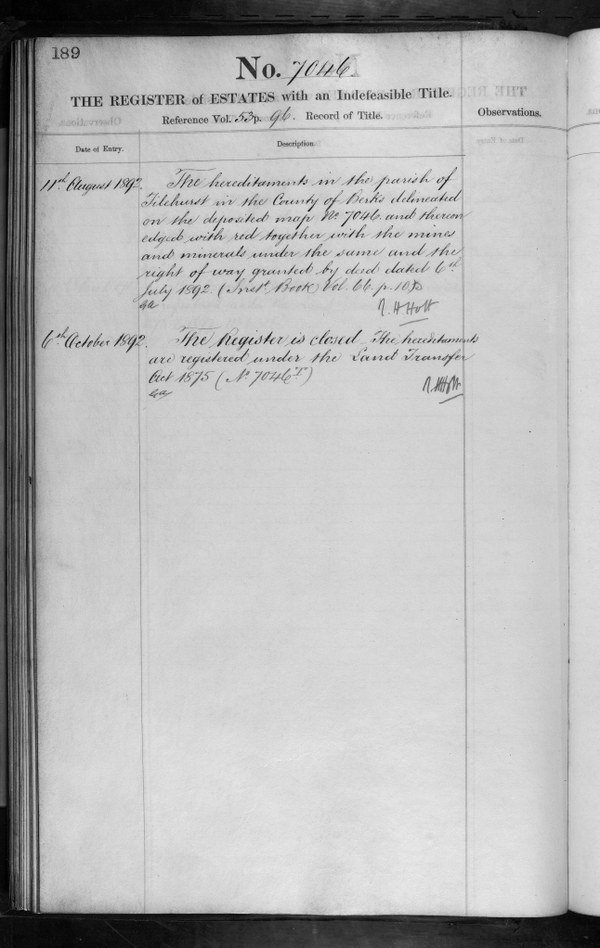 189
No. 7046
THE REGISTER of ESTATES with an Indefeasible Title.
Reference Vol. 53 p. 96. Record of Title.
Observations.
Date of Entry.
Description
11th August 1892.
The hereditaments in the parish of
Tilehurst in the County of Berks delineated
on the deposited map No 7046 and thereon
edged with red together with the mines
and minerals under the same and the
right of way granted by deed dated 6th
July 1892 (Inst. Book Vol. 66 p. 108)
R H Holt
6th October 1892
The Register is closed. The hereditaments
are registered under the Land Transfer
Act 1875 (No 7046T)
R H Holt